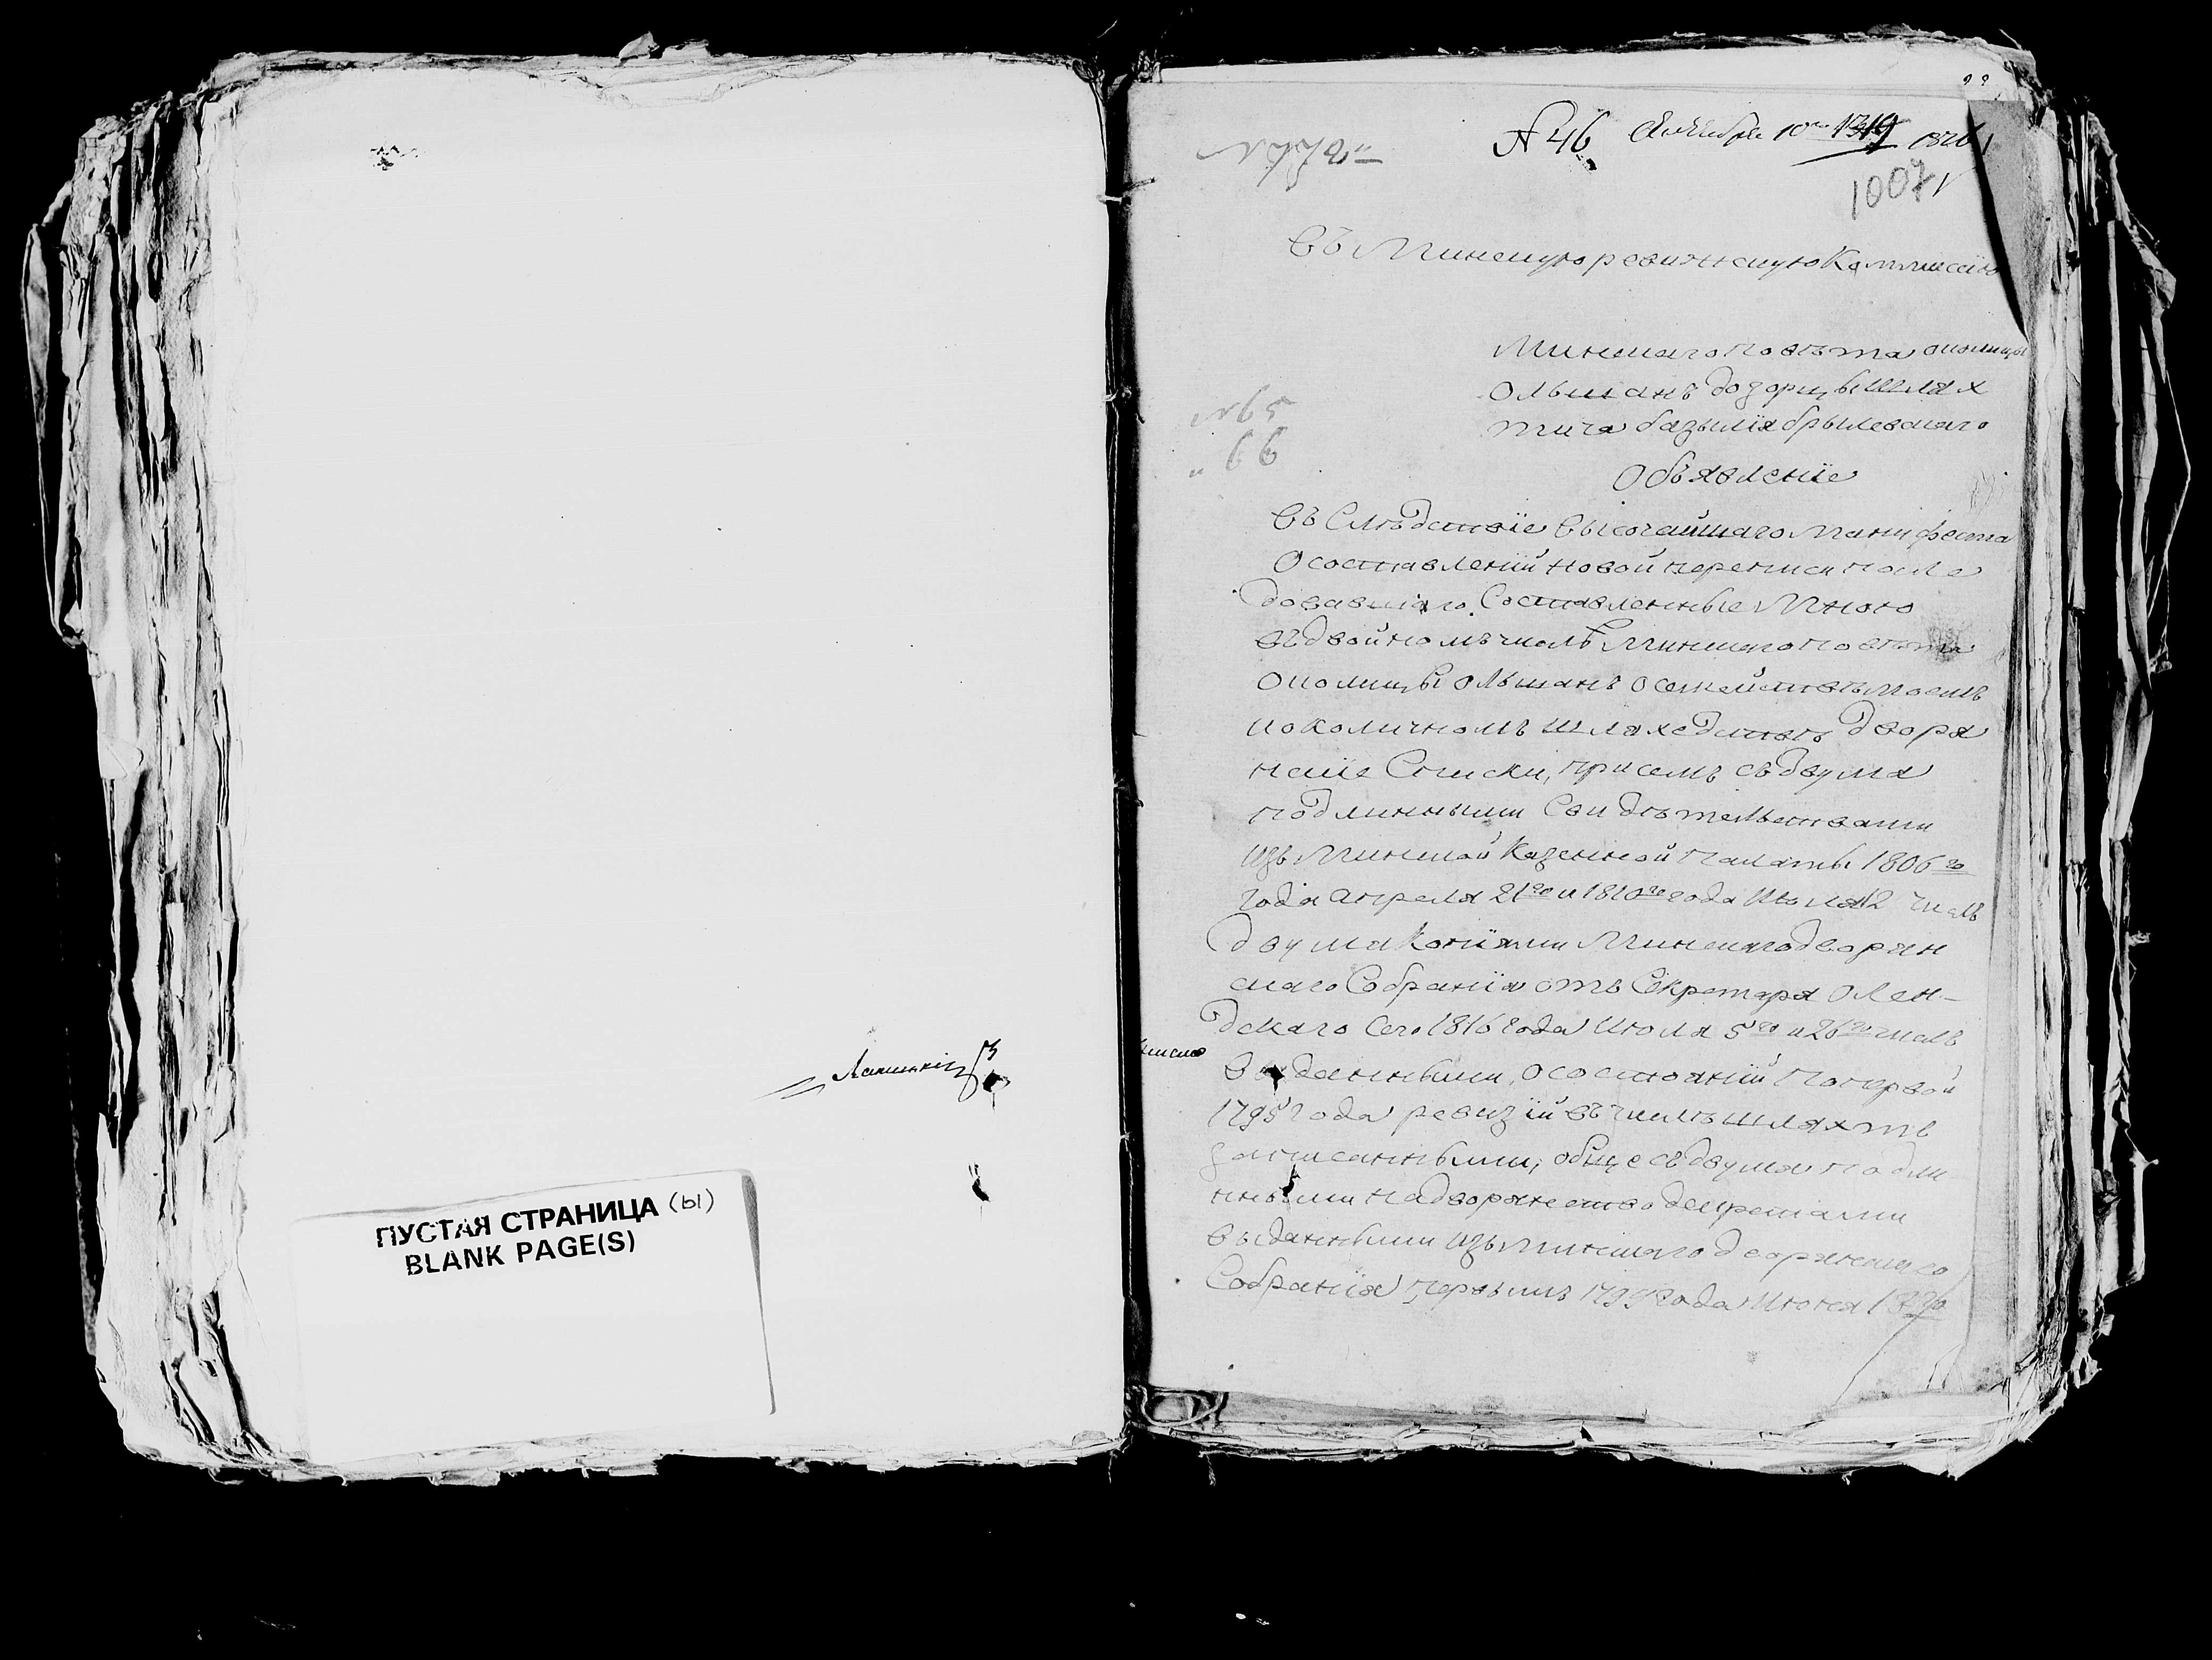 Лапицкій
ПУСТАЯ СТРАНИЦА (ы)
BLANK PAGE(S)
№ 46 10го 1816
1007
Въ Минскую ревижскую Коммисію
Минскаго повѣта околицы
Ольшанъ дозорцы шлях
тича базыля брылевскаго
Объявленіе
№ 65
" 66
Въ Слѣдствіе Высочайшаго Манифеста
О составленіи новой переписи после
довавшаго, Составленные Мною
въ двойномъ числѣ Минскаго повѣта
Околицы Ольшанъ о семействѣ моемъ
и околичномъ шляхедствѣ дворя
нские Списки, при семъ съ двума
подлинными Свидѣтельствами
изъ Минской Казенной палаты 1806го
года апреля 21го и 1810го года Июля 12 числъ
двума Копіями Минскаго дворян
скаго Собранія отъ Секретаря Олен-
дскаго Сего 1816 года Июля 5го и 26го числъ
выданными, о состояніи по первой
1795 года ревизіи въ числѣ шляхты
записанными, обще съ двума подли
нными на дворянство декретами
выданными изъ Минскаго дворянскаго
Собранія первымъ 1799 года Июня